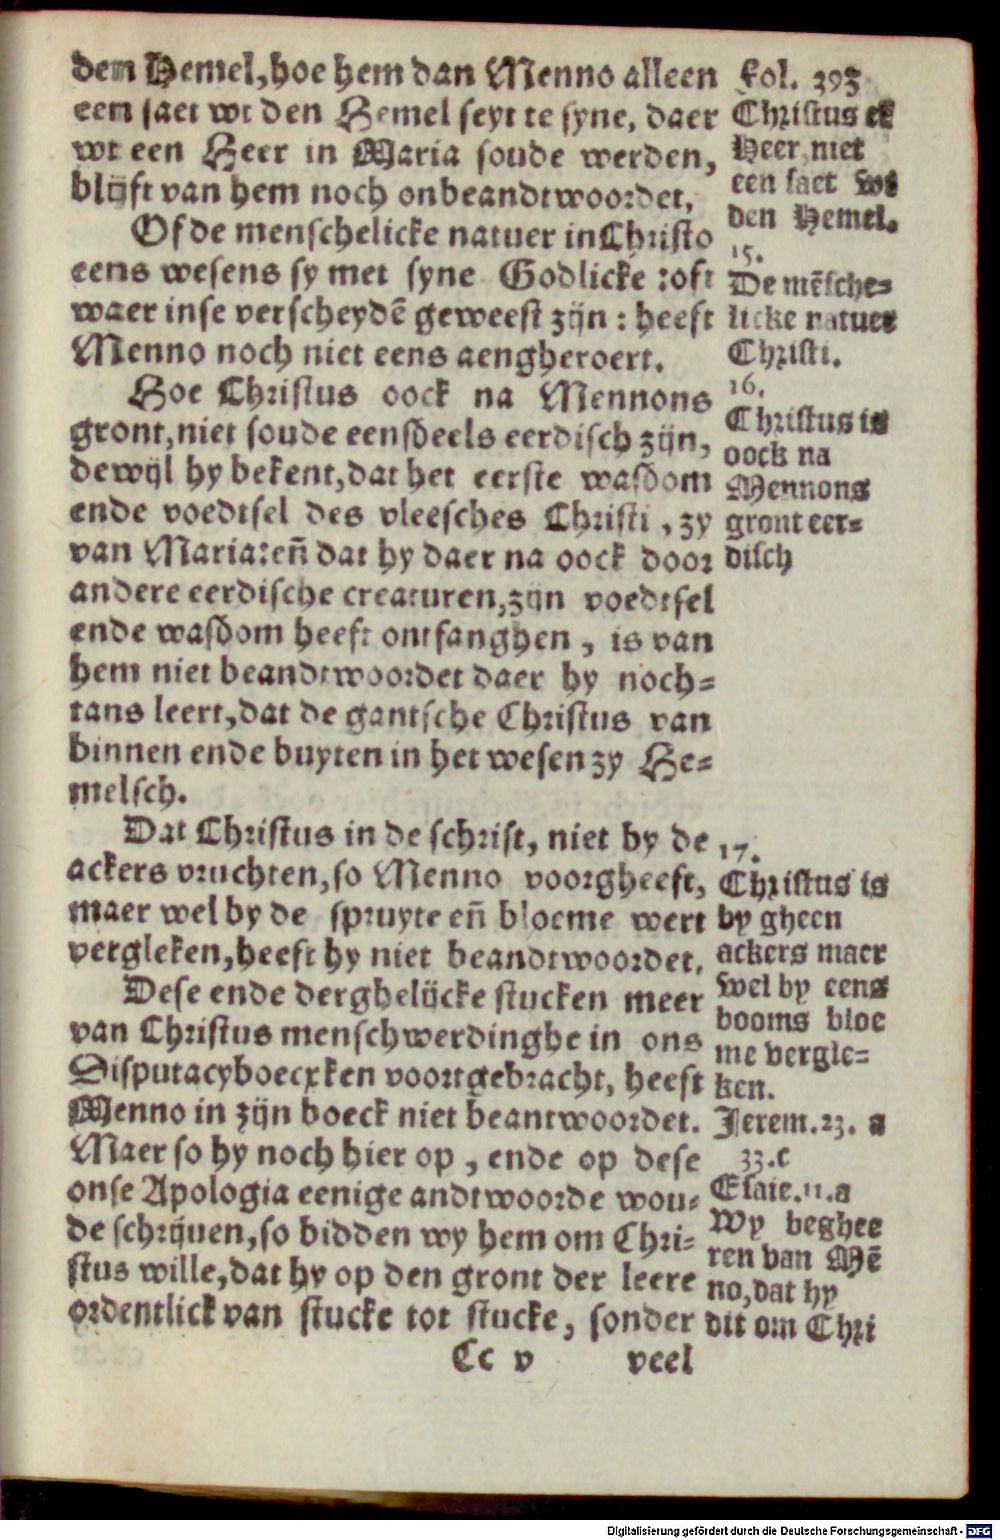 dem Hemel, hoe hem dan Menno alleen
een saet wt den Hemel seyt te syne, daer
wt een Heer in Maria soude werden,
blijft van hem noch onbeandtwoordet.
Of de menschelicke natuer in Christo
eens wesens sy met syne Godlicke : oft
waer in se verscheydē geweest zijn : heeft
Menno noch niet eens aengheroert.
Hoe Christus oock na Mennons
gront, niet soude eensdeels eerdisch zijn,
dewijl hy bekent, dat het eerste wasdom
ende voedtsel des vleesches Christi, zy
van Maria: eñ dat hy daer na oock door
andere eerdische creaturen, zijn voedtsel
ende wasdom heeft ontfanghen, is van
hem niet beandtwoordet daer hy noch=
tans leert, dat de gantsche Christus van
binnen ende buyten in het wesen zy He=
melsch.
Dat Christus in de schrift, niet by de
ackers vruchten, so Menno voorgheeft,
maer wel by de spruyte eñ bloeme wert
vergleken, heeft hy niet beandtwoordet.
Dese ende derghelijcke stucken meer
van Christus menschwerdinghe in ons
Disputacyboecxken voortgebracht, heeft
Menno in zijn boeck niet beantwoordet.
Maer so hy noch hier op, ende op dese
onse Apologia eenige andtwoorde wou=
de schrijuen, so bidden wy hem om Chri=
stus wille, dat hy op den gront der leere
ordentlick van stucke tot stucke, sonder
Cc v veel
Fol. 393
Christus ee
Heer, niet
een saet wt
den Hemel.
15.
De mēsche=
licke natuer
Christi.
16.
Christus is
oock na
Mennons
gront eer=
disch
17.
Christus is
by gheen
ackers maer
wel by eens
booms bloe
me vergle=
ken.
Jerem. 23. a
33. c
Esaie. 11. a
Wy beghee
ren van Mē
no, dat hy
dit om Chri
Digitalisierung gefördert durch die Deutsche Forschungsgemeinschaft - DFG